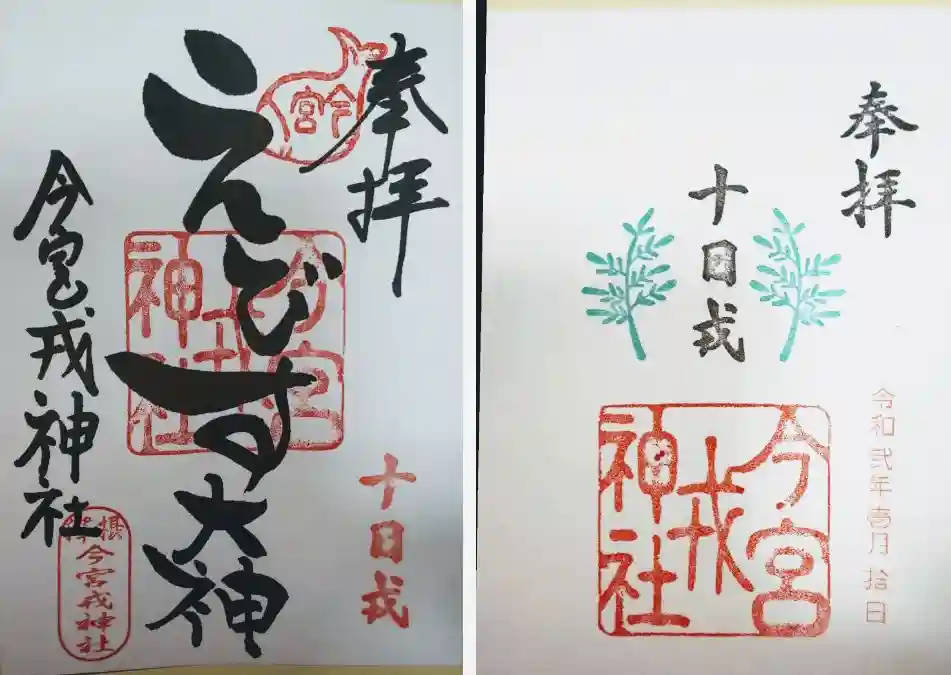 奉拝
今宮
えびす大神
今宮戎神社
十日戎
今宮
戎
神社
今宮戎神社
奉拝
十日戎
令和弐年壱月拾日
今宮
戎
神社